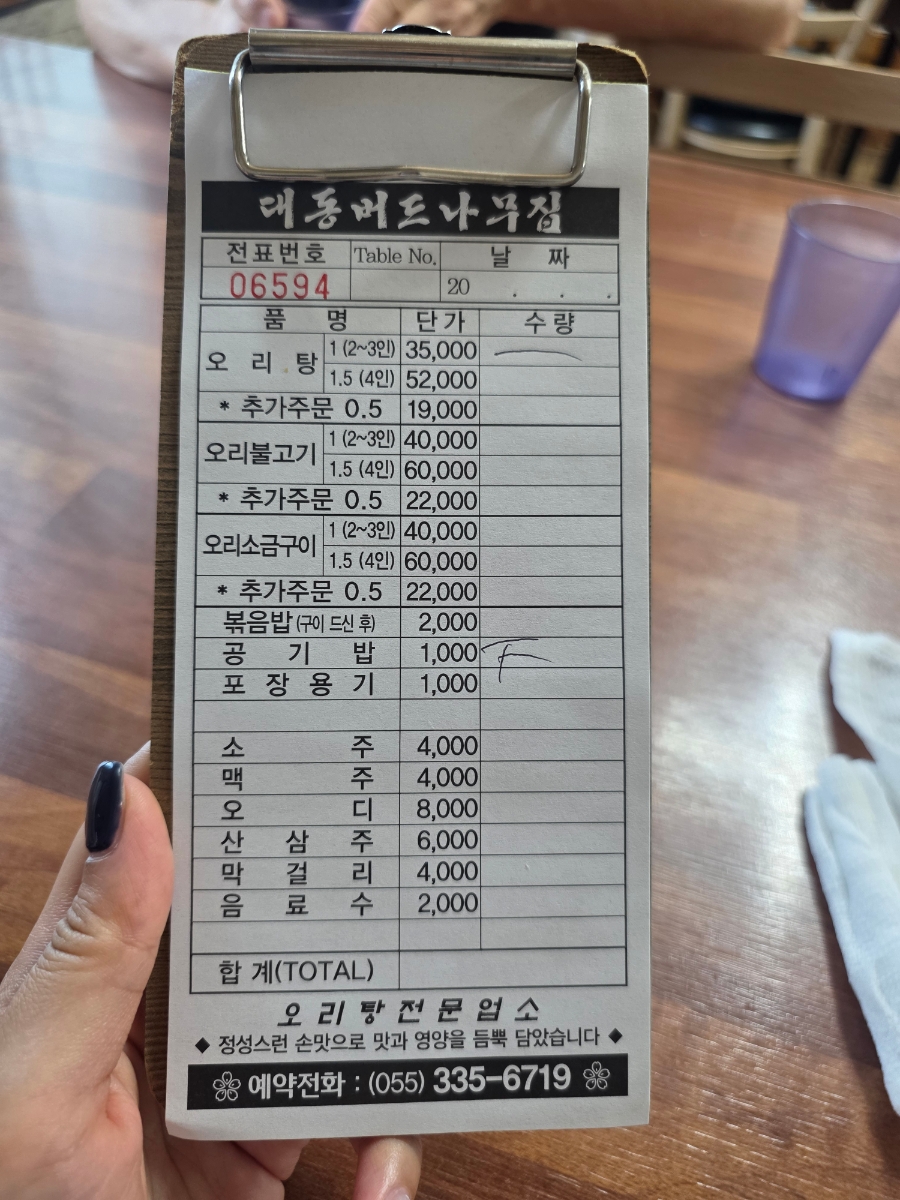 대동버드나무집
전표번호 Table No. 날 짜
06594 20 . . .
품 명 단가 수량
오 리 탕 1 (2~3인) 35,000 一
1.5 (4인) 52,000
* 추가주문 0.5 19,000
오리불고기 1 (2~3인) 40,000
1.5 (4인) 60,000
* 추가주문 0.5 22,000
오리소금구이 1 (2~3인) 40,000
1.5 (4인) 60,000
* 추가주문 0.5 22,000
볶음밥(구이 드신 후) 2,000
공 기 밥 1,000
포 장 용 기 1,000
소 주 4,000
맥 주 4,000
오 디 8,000
산 삼 주 6,000
막 걸 리 4,000
음 료 수 2,000
합 계(TOTAL)
오리탕전문업소
◆ 정성스런 손맛으로 맛과 영양을 듬뿍 담았습니다 ◆
예약전화 : (055) 335-6719